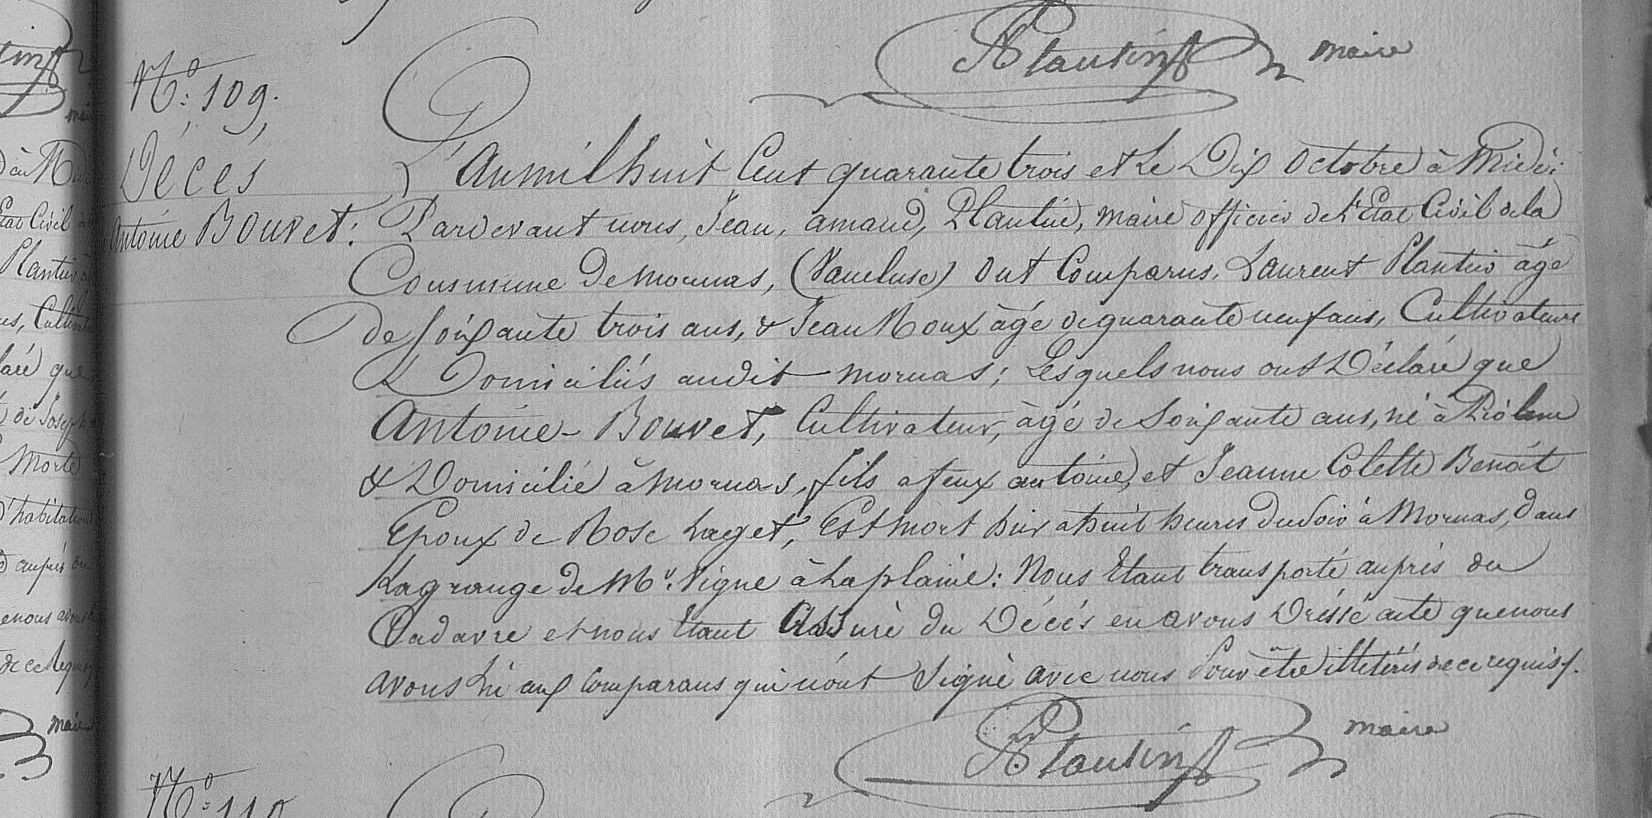 Plantin maire
N.º 109.
Décés
Antoine Bouvet:
L'an mil huit Cent quarante trois et le Dix Octobre à Midi:
Pardevant nous, Jean, amand, Plantin, maire officier de l'Etat Civil de la
Commune de mornas, (Vaucluse) ont Comparus, Laurent Plantin âgé
de soixante trois ans, & Jean Roux âgé de quarante neuf ans, Cultivateurs
& Domiciliés audit mornas; Lesquels nous ont Déclaré que
Antoine Bouvet, Cultivateur, âgé de Soixante ans, né à Piolenc
& Domicilié à mornas, fils a feux antoine, et Jeanne Colette Benoit
Epoux de Rose Laget, Est mort hier a huit heures du soir à Mornas, dans
La grange de Mr. Vigne à La plaine: Nous Etant transporté auprès du
Cadavre et nous Etant Assuré du Décés en avons Dréssé acte que nous
avons Lu aux Comparans qui n'ont Signé avec nous Pour être illétérés de ce requis.
Plantin maire
N.º 110